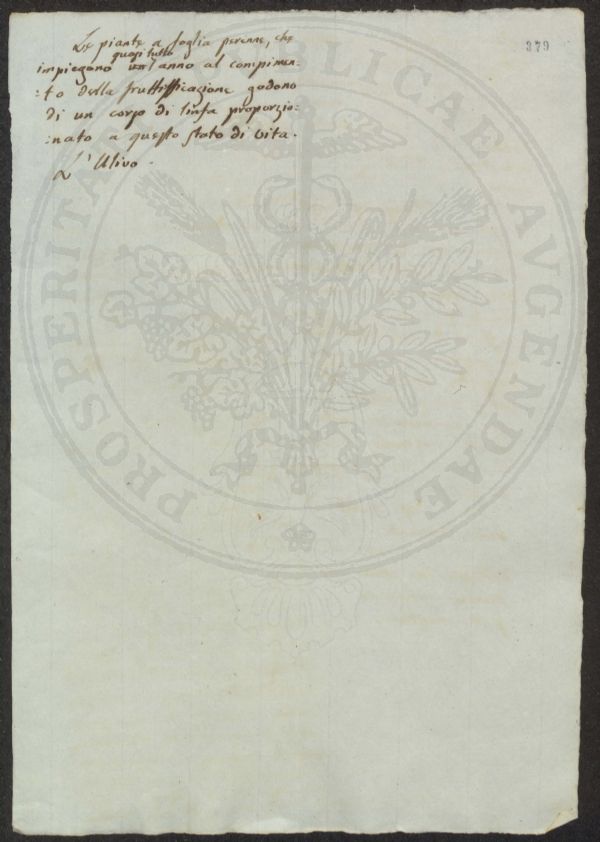 379
Le piante a foglia perenne, che
quasi tutto
impiegono un l'anno al compimen:
:to della fruttifficazione godono
di un corpo di linfa proporzio:
:nato a questo stato di vita.
L'Ulivo.
PROSPERITATI PUBLICAE AVGENDAE